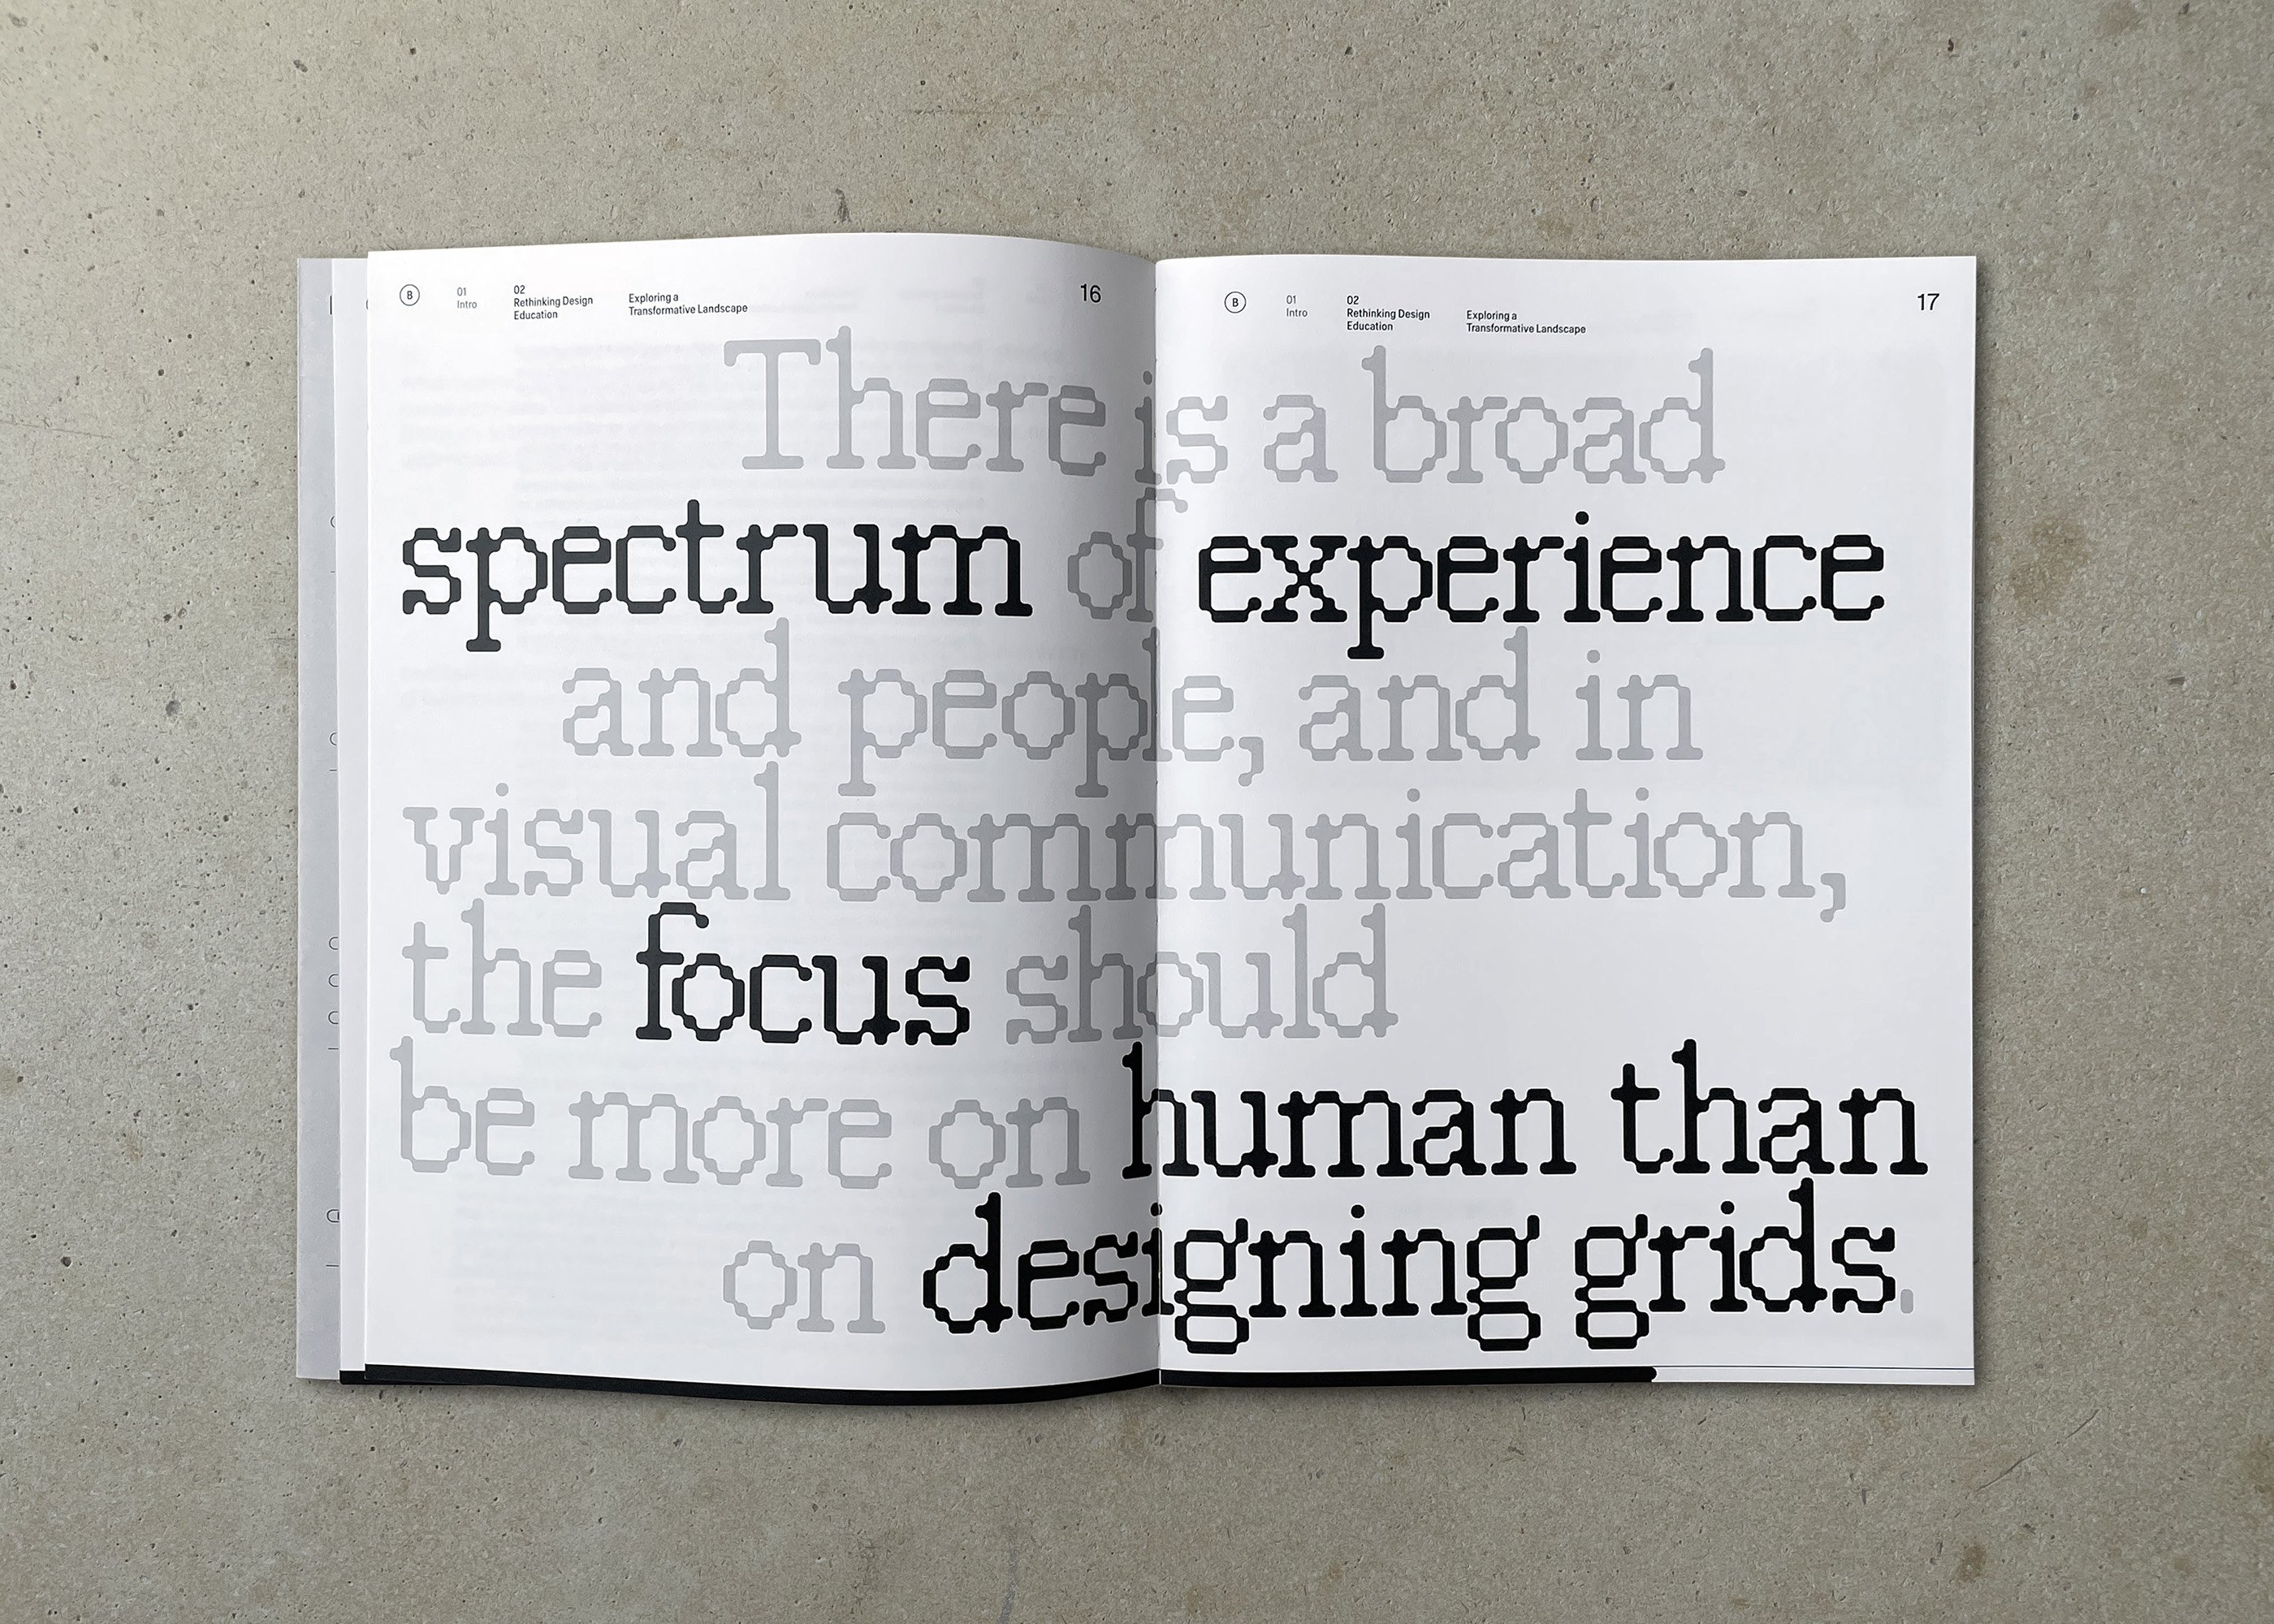 B
01
Intro
02
Rethinking Design
Education
Exploring a
Transformative Landscape
16
B
01
Intro
02
Rethinking Design
Education
Exploring a
Transformative Landscape
17
There is a broad
spectrum of experience
and people, and in
visual communication,
the focus should
be more on human than
on designing grids.